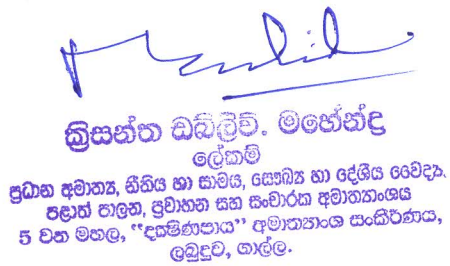 ක්‍රිසන්ත ඩබ්ලිව්. මහේන්ද්‍ර
ලේකම්
ප්‍රධාන අමාත්‍ය, නීතිය හා සාමය, සෞඛ්‍ය හා දේශීය වෛද්‍ය,
පළාත් පාලන, ප්‍රවාහන සහ සංචාරක අමාත්‍යාංශය
5 වන මහල, “දක්ෂිණපාය” අමාත්‍යාංශ සංකීර්ණය,
ලබුදූව, ගාල්ල.